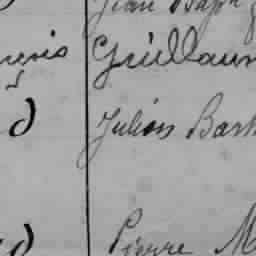 Jean Bap
Guillaum
d Julien Bart
d Pierre M